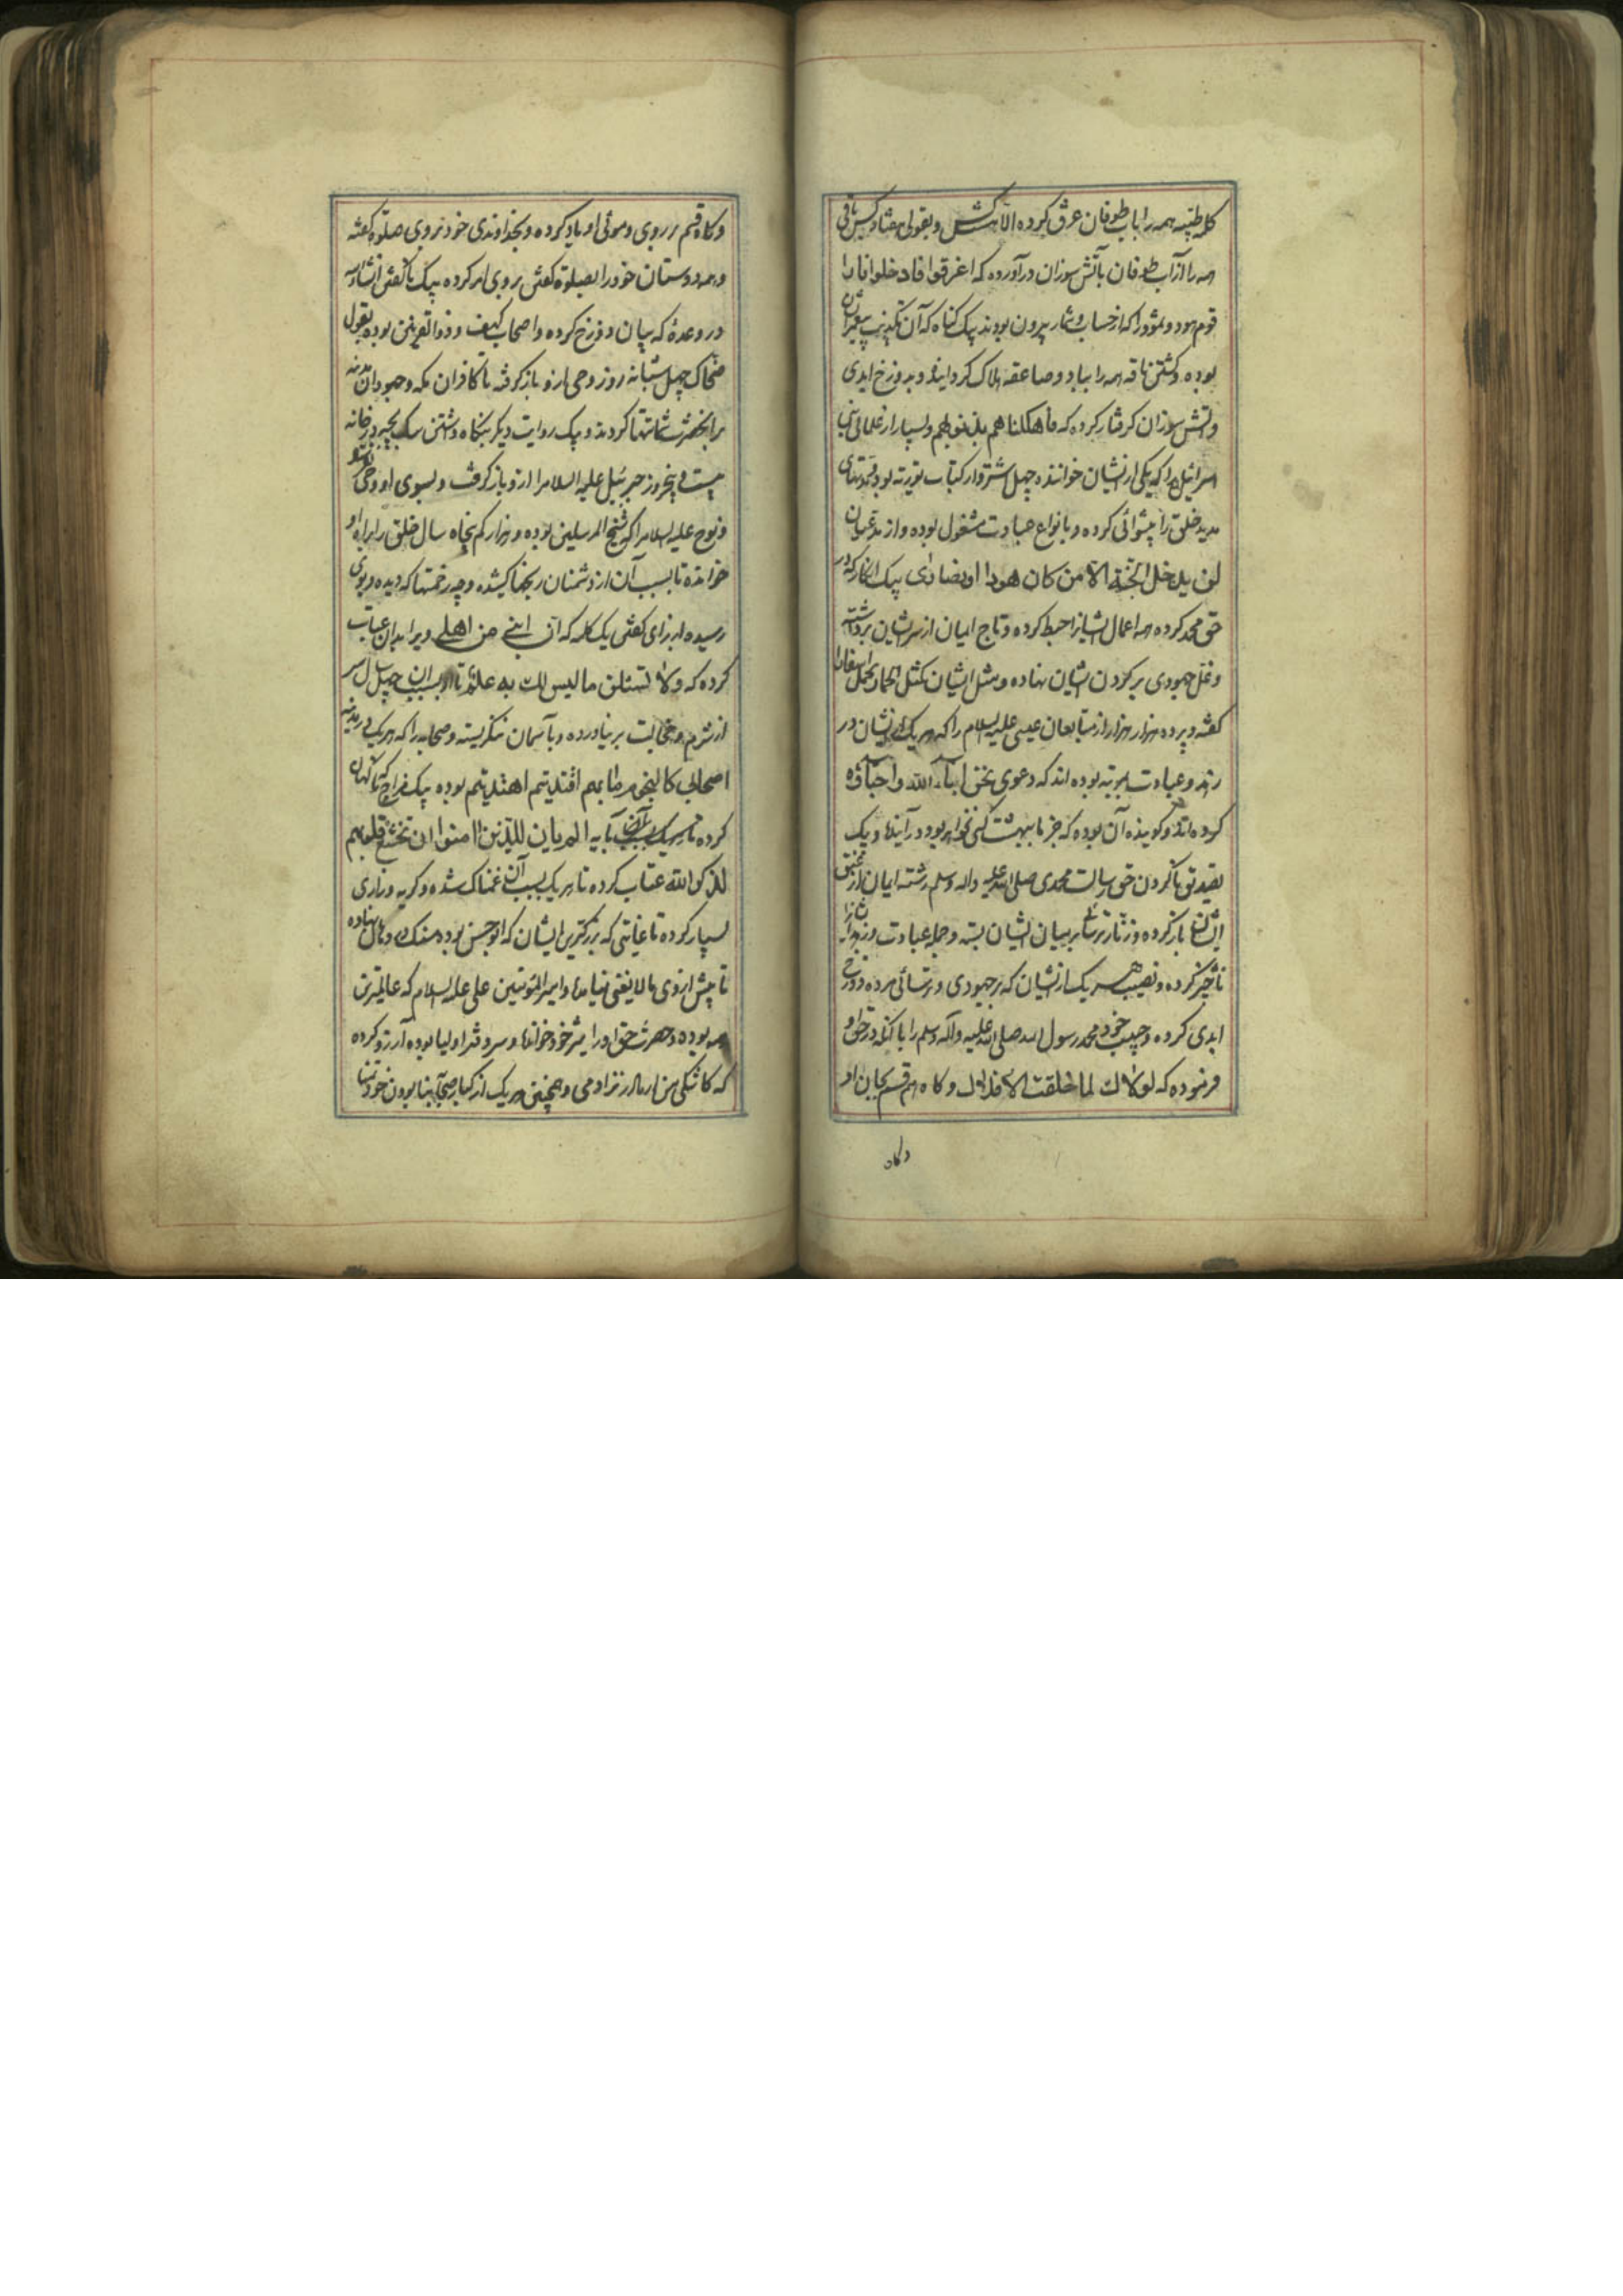 کلمه طیبه همه را باب طوفان غرق کرده الا شش کس و بقولی هفتاد کس باقی
همه را از آب طوفان بآتش سوزان در آورده که اغرقوا فادخلوا نارا
قوم هود و ثمود را که از حساب و شمار بیرون بودند بیک کناه که آن تکذیب پیغمبران
بوده و کشتن ناقه همه را بباد و صاعقه هلاک کردانیده و بدوزخ ابدی
و آتش سوزان کرفتار کرده که فاهلکناهم بذنوبهم و بسیار از علمائی بنی
اسرائیل را که یکی از نشیان خواننده چهل شتروار کتاب توریة بود و مدتهای
مدید خلق را پیشوائی کرده و بانواع عبادت مشغول بوده و از مدعیان
لن یدخل الجنة الا من کان هودا او نصاری بیک انکار که در
حق محمد کرده همه اعمال ایشانرا حبط کرده و تاج ایمان از سر ایشان برداشته
و غل جهودی بر کردن ایشان نهاده و مثل ایشان کمثل الحمار یحمل اسفارا
کفته و برده هزار هزار از متابعان عیسی علیه السلام را که هر یک از نشان در
زهد و عبادت بمرتبه بوده اند که دعوی نحن ابناء الله واحباؤه
کرده اند و کوینده آن بوده که جز ما ببهشت کسی نخواهد بود در آیند و بیک
تصدیق ناکردن حق رسالت محمدی صلی الله علیه واله وسلم رشته ایمان از عنق
ایشان باز کرده و زنار ترسائی بر میان ایشان بسته و جمله عبادت و زهد
ناچیز کرده و نصیب هر یک از نشیان که بر جهودی و ترسائی مرده دوزخ
ابدی کرده و حبیب خود محمد رسول الله صلی الله علیه وآله وسلم را با آنکه در حق او
فرموده که لولاك لما خلقت الافلاك و کاه هم قسم بجان او
وکاه
و کاه قسم بر روی و موئی او یاد کرده و بخداوندی خود بروی صلوة کفته
و همه دوستان خود را بصلوة کفتن بروی امر کرده بیک ناکفتن انشاء الله
در وعدهٔ که بیان دوزخ کرده و اصحاب کهف و ذو القرنین بوده بقول
ضحاک چهل شبانه روز وحی از و باز کرفته تا کافران مکه و جهودان مدینه
بر آنحضرت شماتتها کردند و بیک روایت دیکر بنکاه داشتن سک بچه در خانه
بیست و پنجروز جبرئیل علیه السلام را از و باز کرفت و بسوی او وحی
و نوح علیه السلام را که شیخ المرسلین بوده و هزار کم پنجاه سال خلق را براه او
خوانده تا بسبب آن از دشمنان رنجها کشیده و چه زخمتها که دیده و بوی
رسیده از برای کفتن یک کلمه که ان ابنی من اهلی ویرا بدان عتاب
کرده که ولا تسئلن ما لیس لك به علم تا بسبب آن چهل سال سر
از شرم و خجالت بر نیاورده و بآسمان ننکریسته و صحابه را که هر یک در
اصحابی کالنجوم بایهم اقتدیتم اهتدیتم بوده بیک مزاح که ناکهان
کرده تا بسبب آن بآیه الم یان للذین امنوا ان تخشع قلوبهم
لذکر الله عتاب کرده تا هر یک بسبب آن غمناک شده و کریه و زاری
بسیار کرده تا غایتی که بزرکترین ایشان که بود سنک در دهان نهاده
تا بیش از وی مالایعنی نیاید و امیر المؤمنین علی علیه السلام که عالمترین
همه بوده و حضرت حق او را شیر خود خوانده و سر دفتر اولیا بوده آرزو کرده
که کاشکی من از مادر نزادمی و همچنین هر یک از کبار صحابه بنابودن خود تمنا